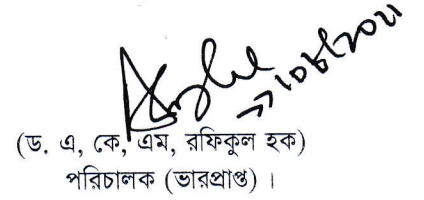 (ড. এ, কে, এম, রফিকুল হক)
পরিচালক (ভারপ্রাপ্ত) ।